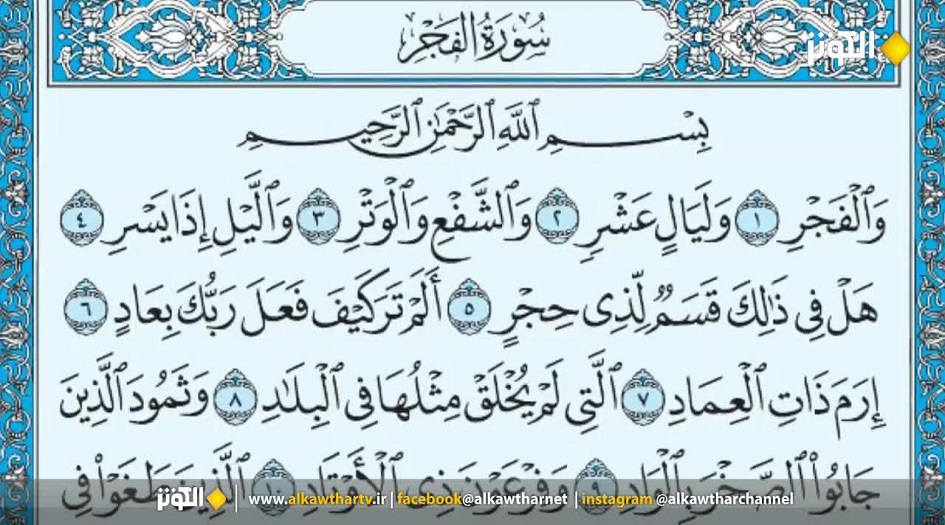 سُورَةُ الفَجْرِ
الكوثر
بِسْمِ ٱللَّهِ ٱلرَّحْمَٰنِ ٱلرَّحِيمِ
وَٱلْفَجْرِ ١ وَلَيَالٍ عَشْرٍ ٢ وَٱلشَّفْعِ وَٱلْوَتْرِ ٣ وَٱلَّيْلِ إِذَا يَسْرِ ٤
هَلْ فِي ذَٰلِكَ قَسَمٌ لِّذِي حِجْرٍ ٥ أَلَمْ تَرَ كَيْفَ فَعَلَ رَبُّكَ بِعَادٍ ٦
إِرَمَ ذَاتِ ٱلْعِمَادِ ٧ ٱلَّتِي لَمْ يُخْلَقْ مِثْلُهَا فِي ٱلْبِلَٰدِ ٨ وَثَمُودَ ٱلَّذِينَ
جَابُوا۟ ٱلصَّخْرَ بِٱلْوَادِ ٩ وَفِرْعَوْنَ ذِي ٱلْأَوْتَادِ ١٠ ٱلَّذِينَ طَغَوْا۟ فِي
الكوثر | www.alkawthartv.ir | facebook@alkawtharnet | instagram @alkawtharchannel